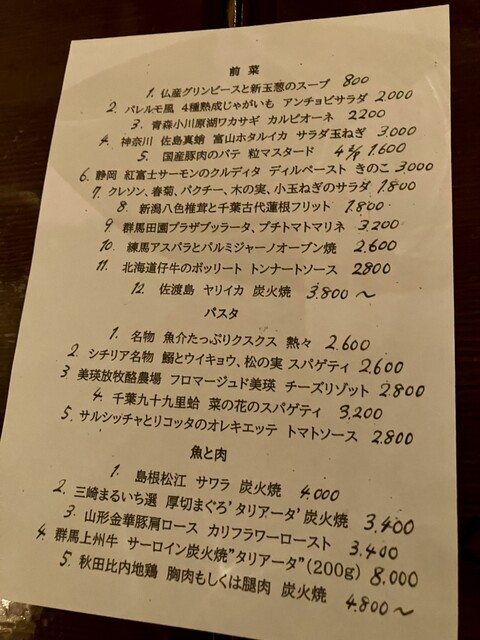 前菜
1. 仏産グリンピースと新玉葱のスープ 800
2. パレルモ風 4種熟成じゃがいも アンチョビサラダ 2.000
3. 青森小川原湖ワカサギ カルピオーネ 2200
4. 神奈川 佐島真蛸 富山ホタルイカ サラダ玉ねぎ 3.000
5. 国産豚肉のパテ 粒マスタード 1.600
6. 静岡 紅富士サーモンのクルディタ ディルペースト きのこ 3.000
7. クレソン、春菊、パクチー、木の実、小玉ねぎのサラダ 1.800
8. 新潟八色椎茸と千葉古代蓮根フリット 1.800
9. 群馬田園プラザブッラータ、プチトマトマリネ 3.200
10. 練馬アスパラとパルミジャーノオーブン焼 2.600
11. 北海道仔牛のボッリート トンナートソース 2800
12. 佐渡島 ヤリイカ 炭火焼 3.800～
パスタ
1. 名物 魚介たっぷりクスクス 熱々 2.600
2. シチリア名物 鰯とウイキョウ、松の実 スパゲティ 2.600
3 美瑛放牧酪農場 フロマージュド美瑛 チーズリゾット 2.800
4. 千葉九十九里蛤 菜の花のスパゲティ 3.200
5. サルシッチャとリコッタのオレキエッテ トマトソース 2.800
魚と肉
1. 島根松江 サワラ 炭火焼 4.000
2. 三崎まるいち選 厚切まぐろ'タリアータ'炭火焼 3.400
3. 山形金華豚肩ロース カリフラワーロースト 3.400
4. 群馬上州牛 サーロイン炭火焼"タリアータ"(200g) 8.000
5. 秋田比内地鶏 胸肉もしくは腿肉 炭火焼 4.800～